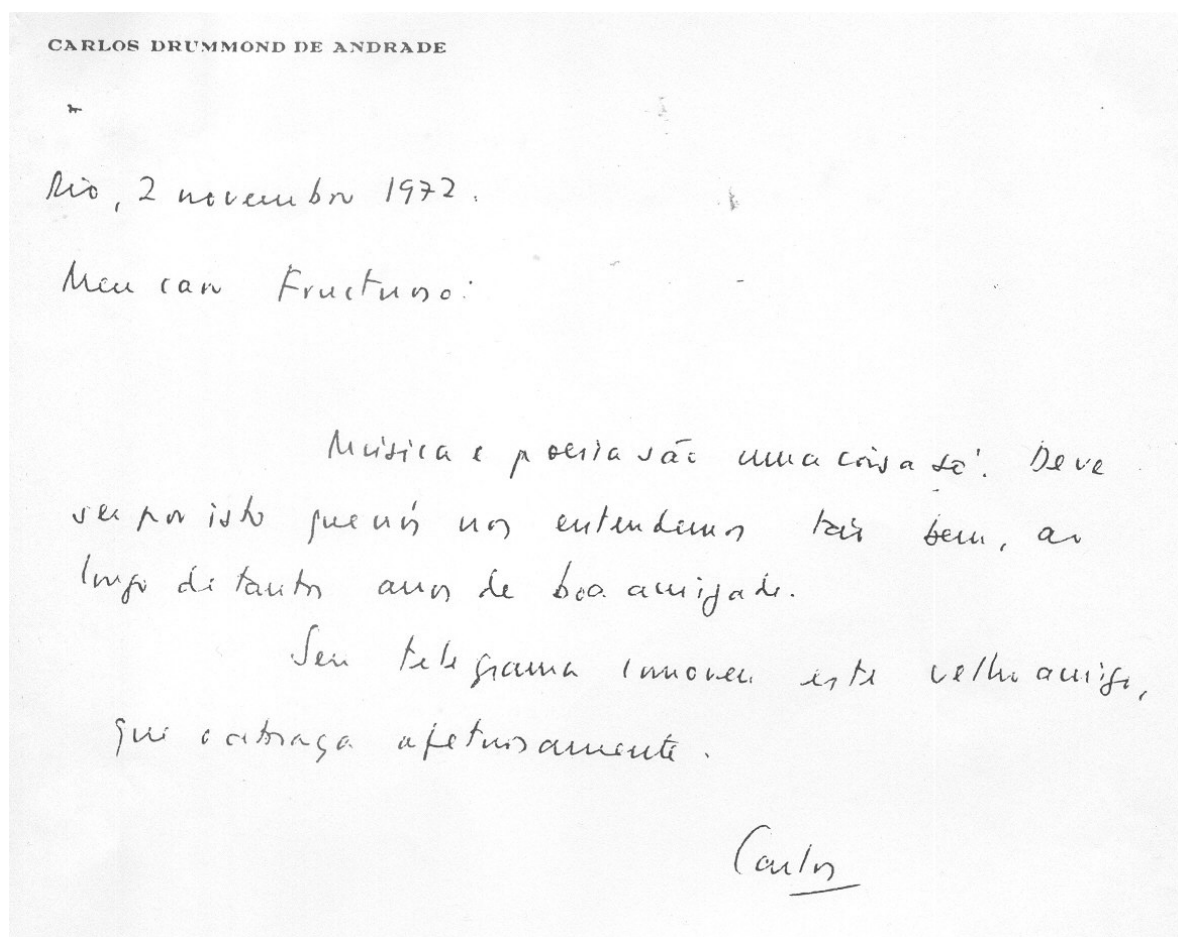 CARLOS DRUMMOND DE ANDRADE
Rio, 2 novembro 1972.
Meu caro Fructuoso:
Música e poesia são uma coisa só. Deve
ser por isto que nós nos entendemos tão bem, ao
longo de tantos anos de boa amizade.
Seu telegrama comoveu este velho amigo,
que o abraça afetuosamente.
Carlos